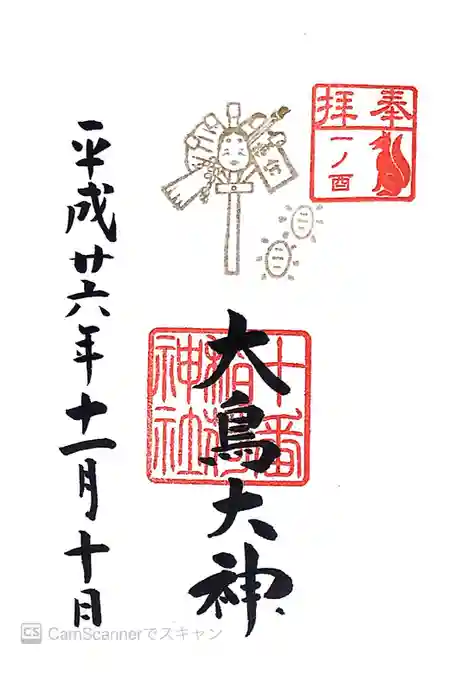 奉拝
一ノ酉
大鳥大神
十番稲荷神社
平成廿六年十一月十日
CS CamScannerでスキャン